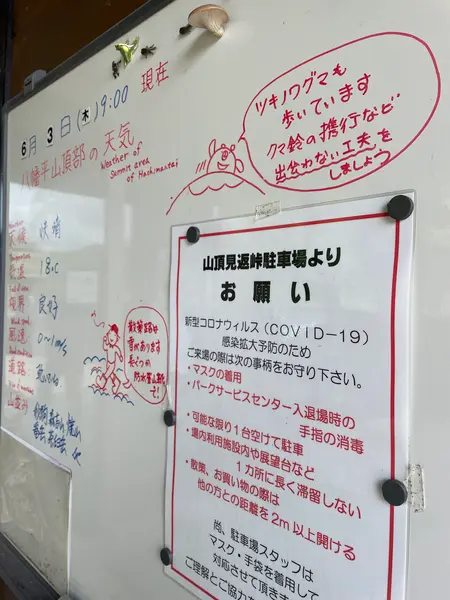 6月 3日(木) 9:00 現在
八幡平山頂部の天気
Weather of
Summit area
of Hachimantai
ツキノワグマも
歩いています
クマ鈴の携行など
出会わない工夫を
しましょう
天候 快晴
気温 18℃
視界 良好
風速 0〜1m/s
道路
山並み
散策路は
雪があります
長ぐつか
防水登山靴
で!
山頂見返峠駐車場より
お願い
新型コロナウィルス(COVID-19)
感染拡大予防のため
ご来場の際は次の事柄をお守り下さい。
・マスクの着用
・パークサービスセンター入退場時の
手指の消毒
・可能な限り1台空けて駐車
・場内利用施設内や展望台など
1カ所に長く滞留しない
・散策、お買い物の際は
他の方との距離を2m以上開ける
尚、駐車場スタッフは
マスク・手袋を着用して
対応させて頂きま
ご理解とご協力を